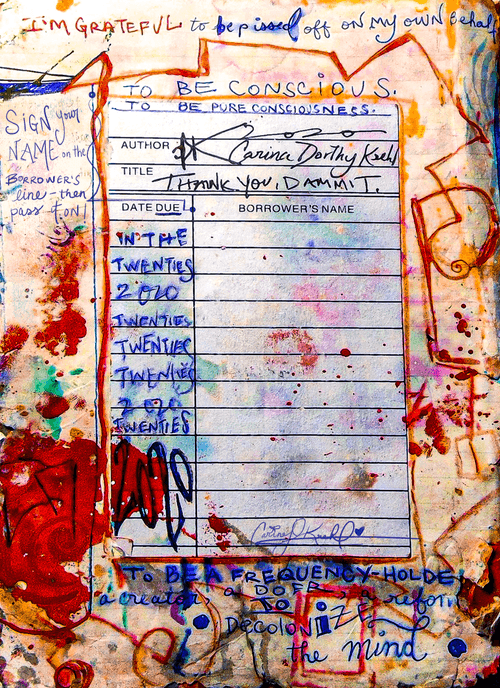 I'M GRATEFUL to be pissed off ON MY OWN Behalf
TO BE CONSCIOUS.
TO BE PURE CONSCIOUSNESS.
SIGN your
NAME on the
BORROWER'S
line - then
pass it ON!
2020
AUTHOR Carina Dorthy
TITLE THANK YOU, DAMMIT.
DATE DUE BORROWER'S NAME
IN THE
TWENTIES
2020
TWENTIES
TWENTIES
TWENTIES
2020
TWENTIES
2020
TO BE A FREQUENCY-HOLDER
a creator, a DOER, a reform
TO
DecoloNIZE
the mind